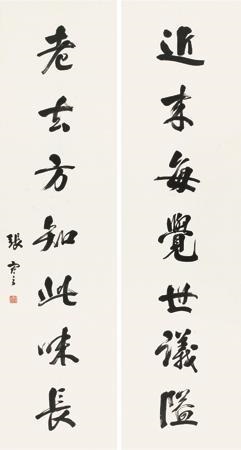 近来每覺世議隘
老去方知此味長
張